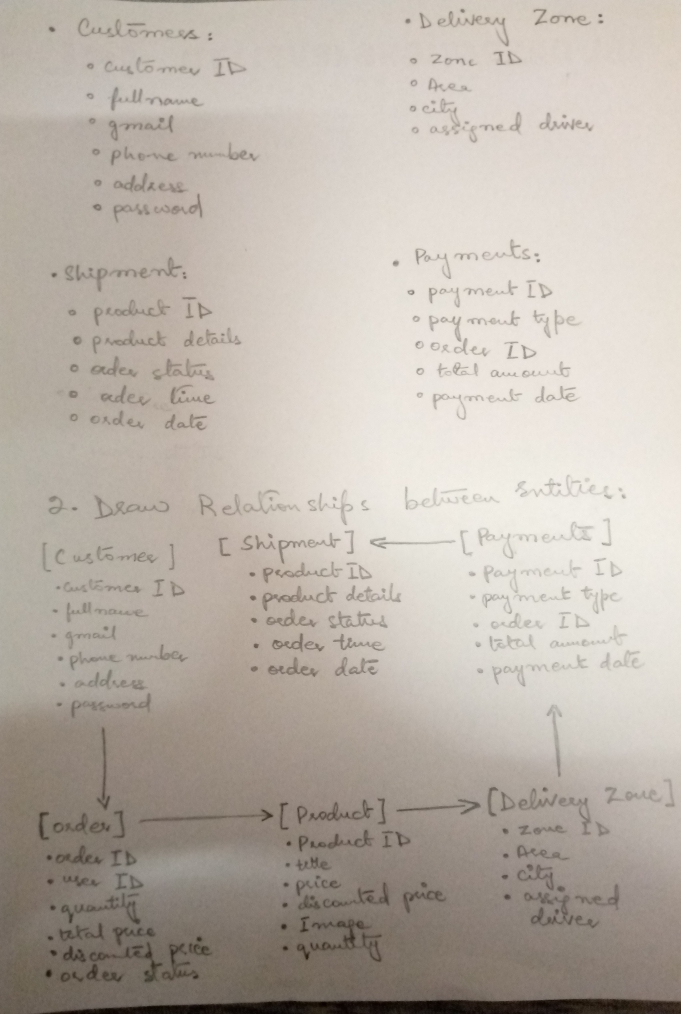 • Customers:
◦ Customer ID
◦ fullname
◦ gmail
◦ phone number
◦ address
◦ password
• Delivery Zone:
◦ Zone ID
◦ Area
◦ city
◦ assigned driver
• Shipment:
◦ product ID
◦ product details
◦ order status
◦ order time
◦ order date
• Payments:
◦ payment ID
◦ payment type
◦ order ID
◦ total amount
◦ payment date
2. Draw Relationships between Entities:
[Customer]
• customer ID
• fullname
• gmail
• phone number
• address
• password
[Shipment]
• product ID
• product details
• order status
• order time
• order date
[Payments]
• Payment ID
• payment type
• order ID
• total amount
• payment date
[order]
• order ID
• user ID
• quantity
• total price
• discounted price
• order status
[Product]
• Product ID
• title
• price
• discounted price
• Image
• quantity
[Delivery Zone]
• Zone ID
• Area
• city
• assigned
driver